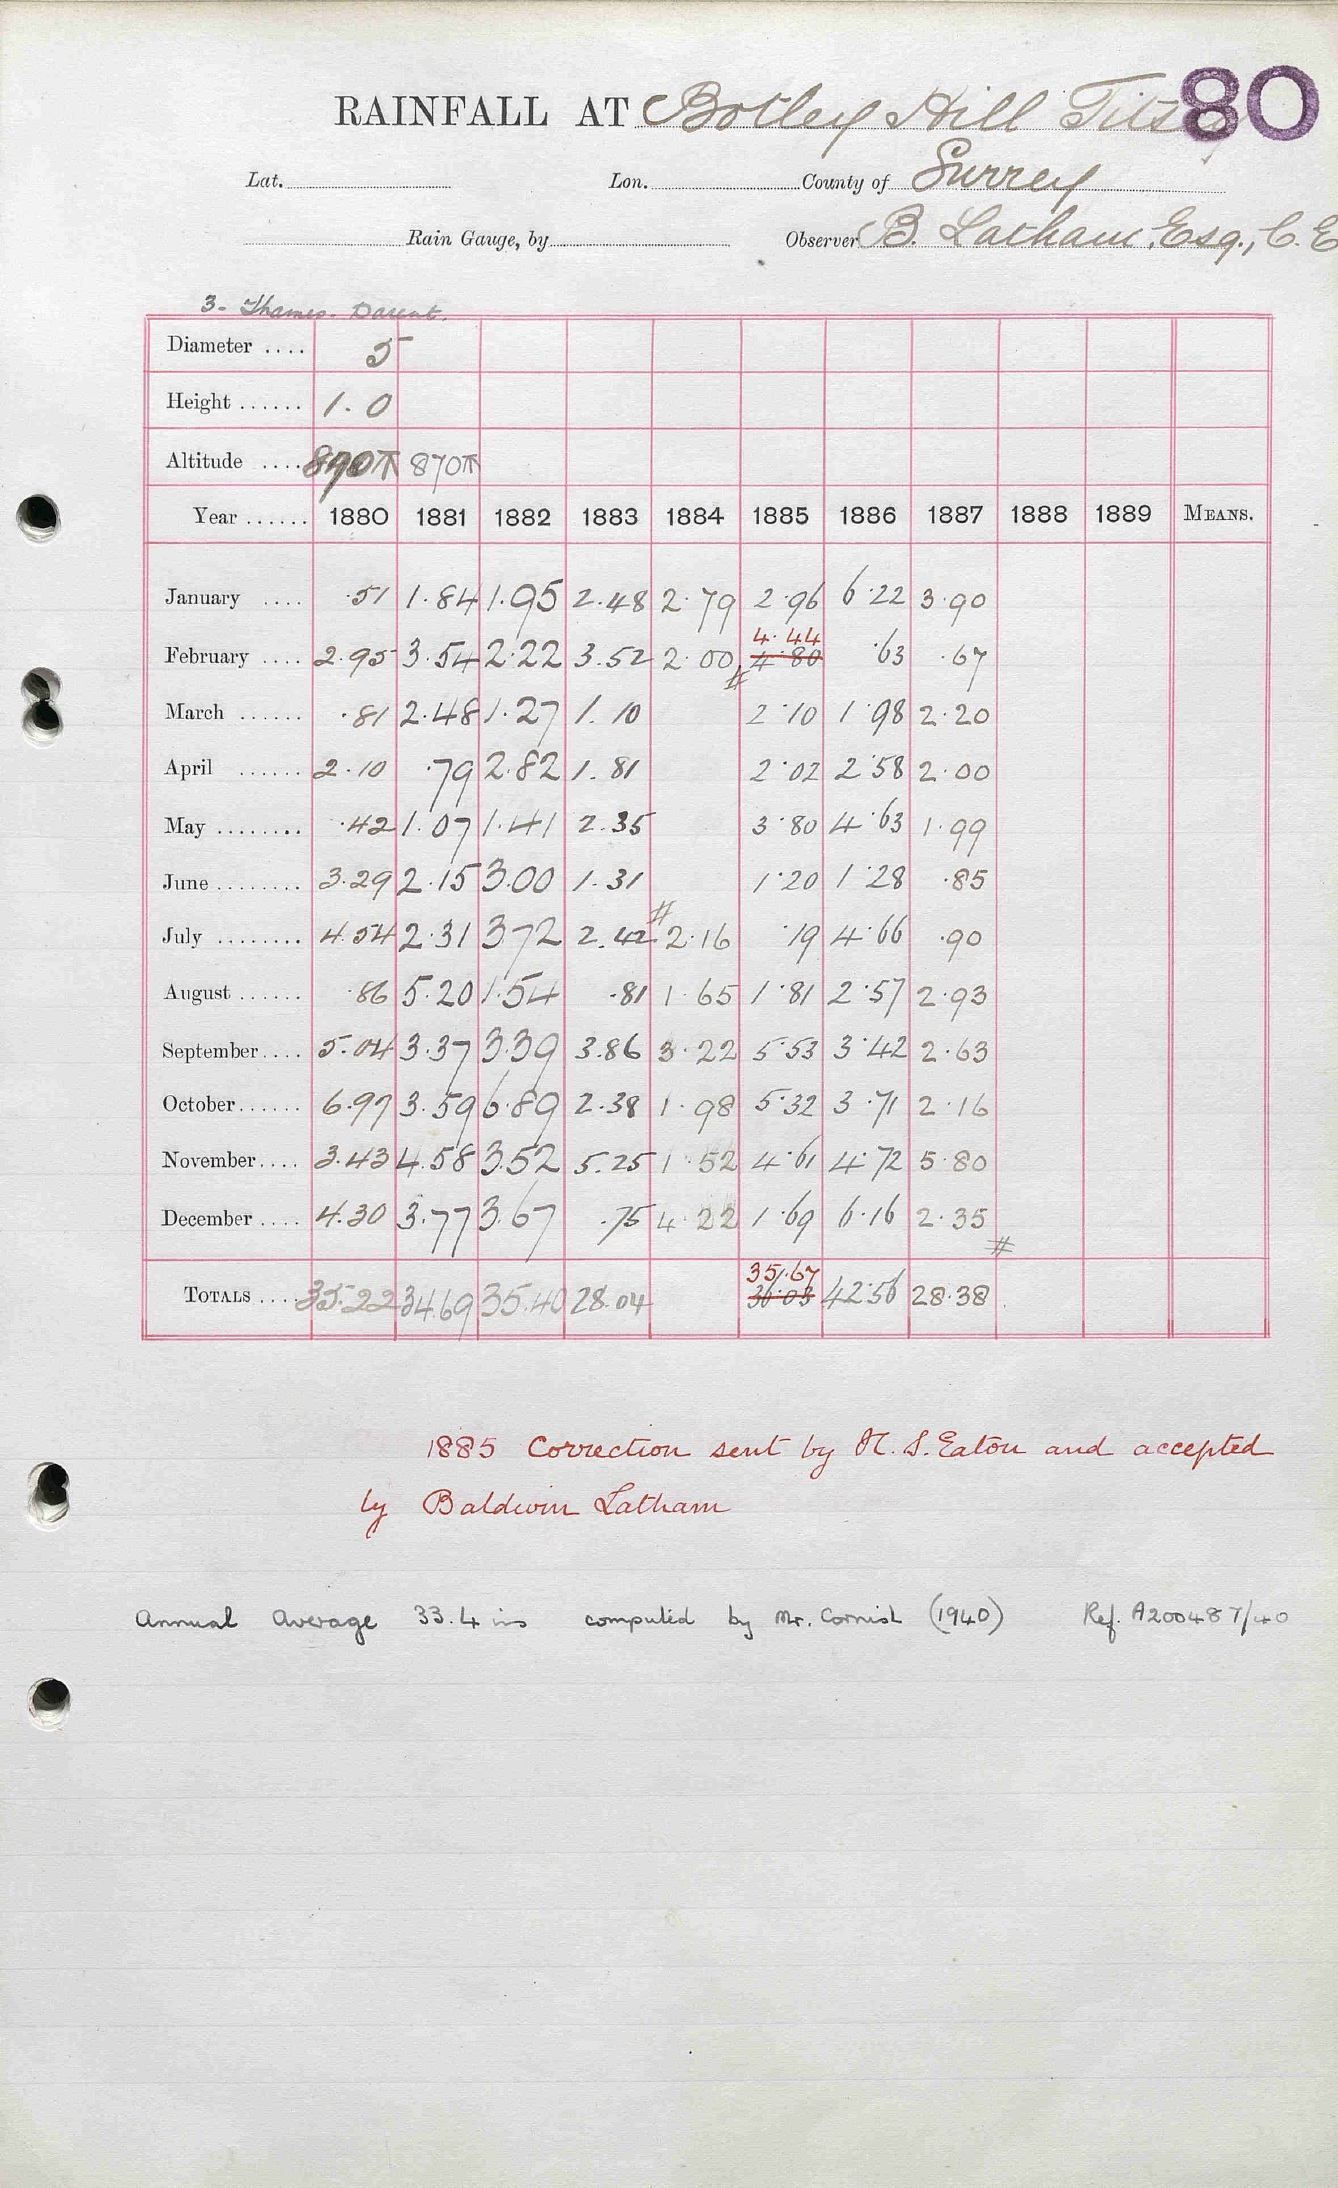 80
RAINFALL AT Botley Hill Titsey
Lat. Lon. County of Surrey
Rain Gauge, by Observer B. Latham, Esq., C.E
3- Thames. Darent.
Diameter .... 5
Height ...... 1.0
Altitude .... 870ft 870ft
Year ...... 1880 1881 1882 1883 1884 1885 1886 1887 1888 1889 MEANS.
January .... .51 1.84 1.95 2.48 2.79 2.96 6.22 3.90
4.44
February .... 2.95 3.54 2.22 3.52 2.00 # 4.80 .63 .67
March ...... .81 2.48 1.27 1.10 2.10 1.98 2.20
April ...... 2.10 .79 2.82 1.81 2.02 2.58 2.00
May ........ .42 1.07 1.41 2.35 3.80 4.63 1.99
June ........ 3.29 2.15 3.00 1.31 1.20 1.28 .85
July ........ 4.54 2.31 3.72 2.42 # 2.16 .19 4.66 .90
August ...... .86 5.20 1.54 .81 1.65 1.81 2.57 2.93
September .... 5.04 3.37 3.39 3.86 3.22 5.53 3.42 2.63
October ...... 6.97 3.59 6.89 2.38 1.98 5.32 3.71 2.16
November .... 3.43 4.58 3.52 5.25 1.52 4.61 4.72 5.80
December .... 4.30 3.77 3.67 .75 4.22 1.69 6.16 2.35 #
35.67
TOTALS .... 35.22 34.69 35.40 28.04 36.03 42.56 28.38
1885 Correction sent by H. S. Eaton and accepted
by Baldwin Latham
Annual Average 33.4 ins computed by Mr. Cornish (1940) Ref. A200487/40